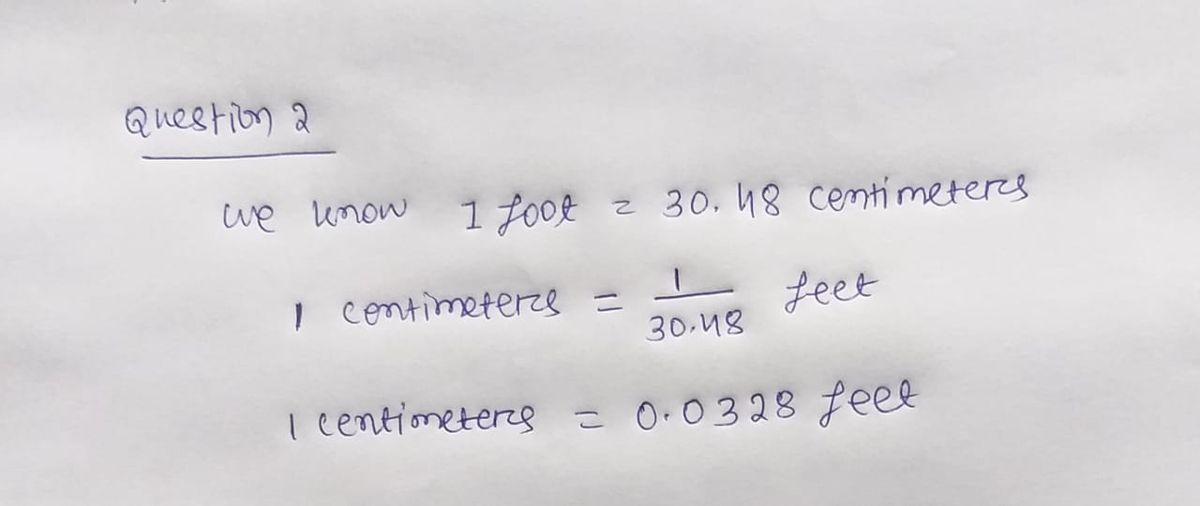 Question 2
we know 1 foot = 30.48 centimeters
1 centimeters = 1/30.48 feet
1 centimeters = 0.0328 feet